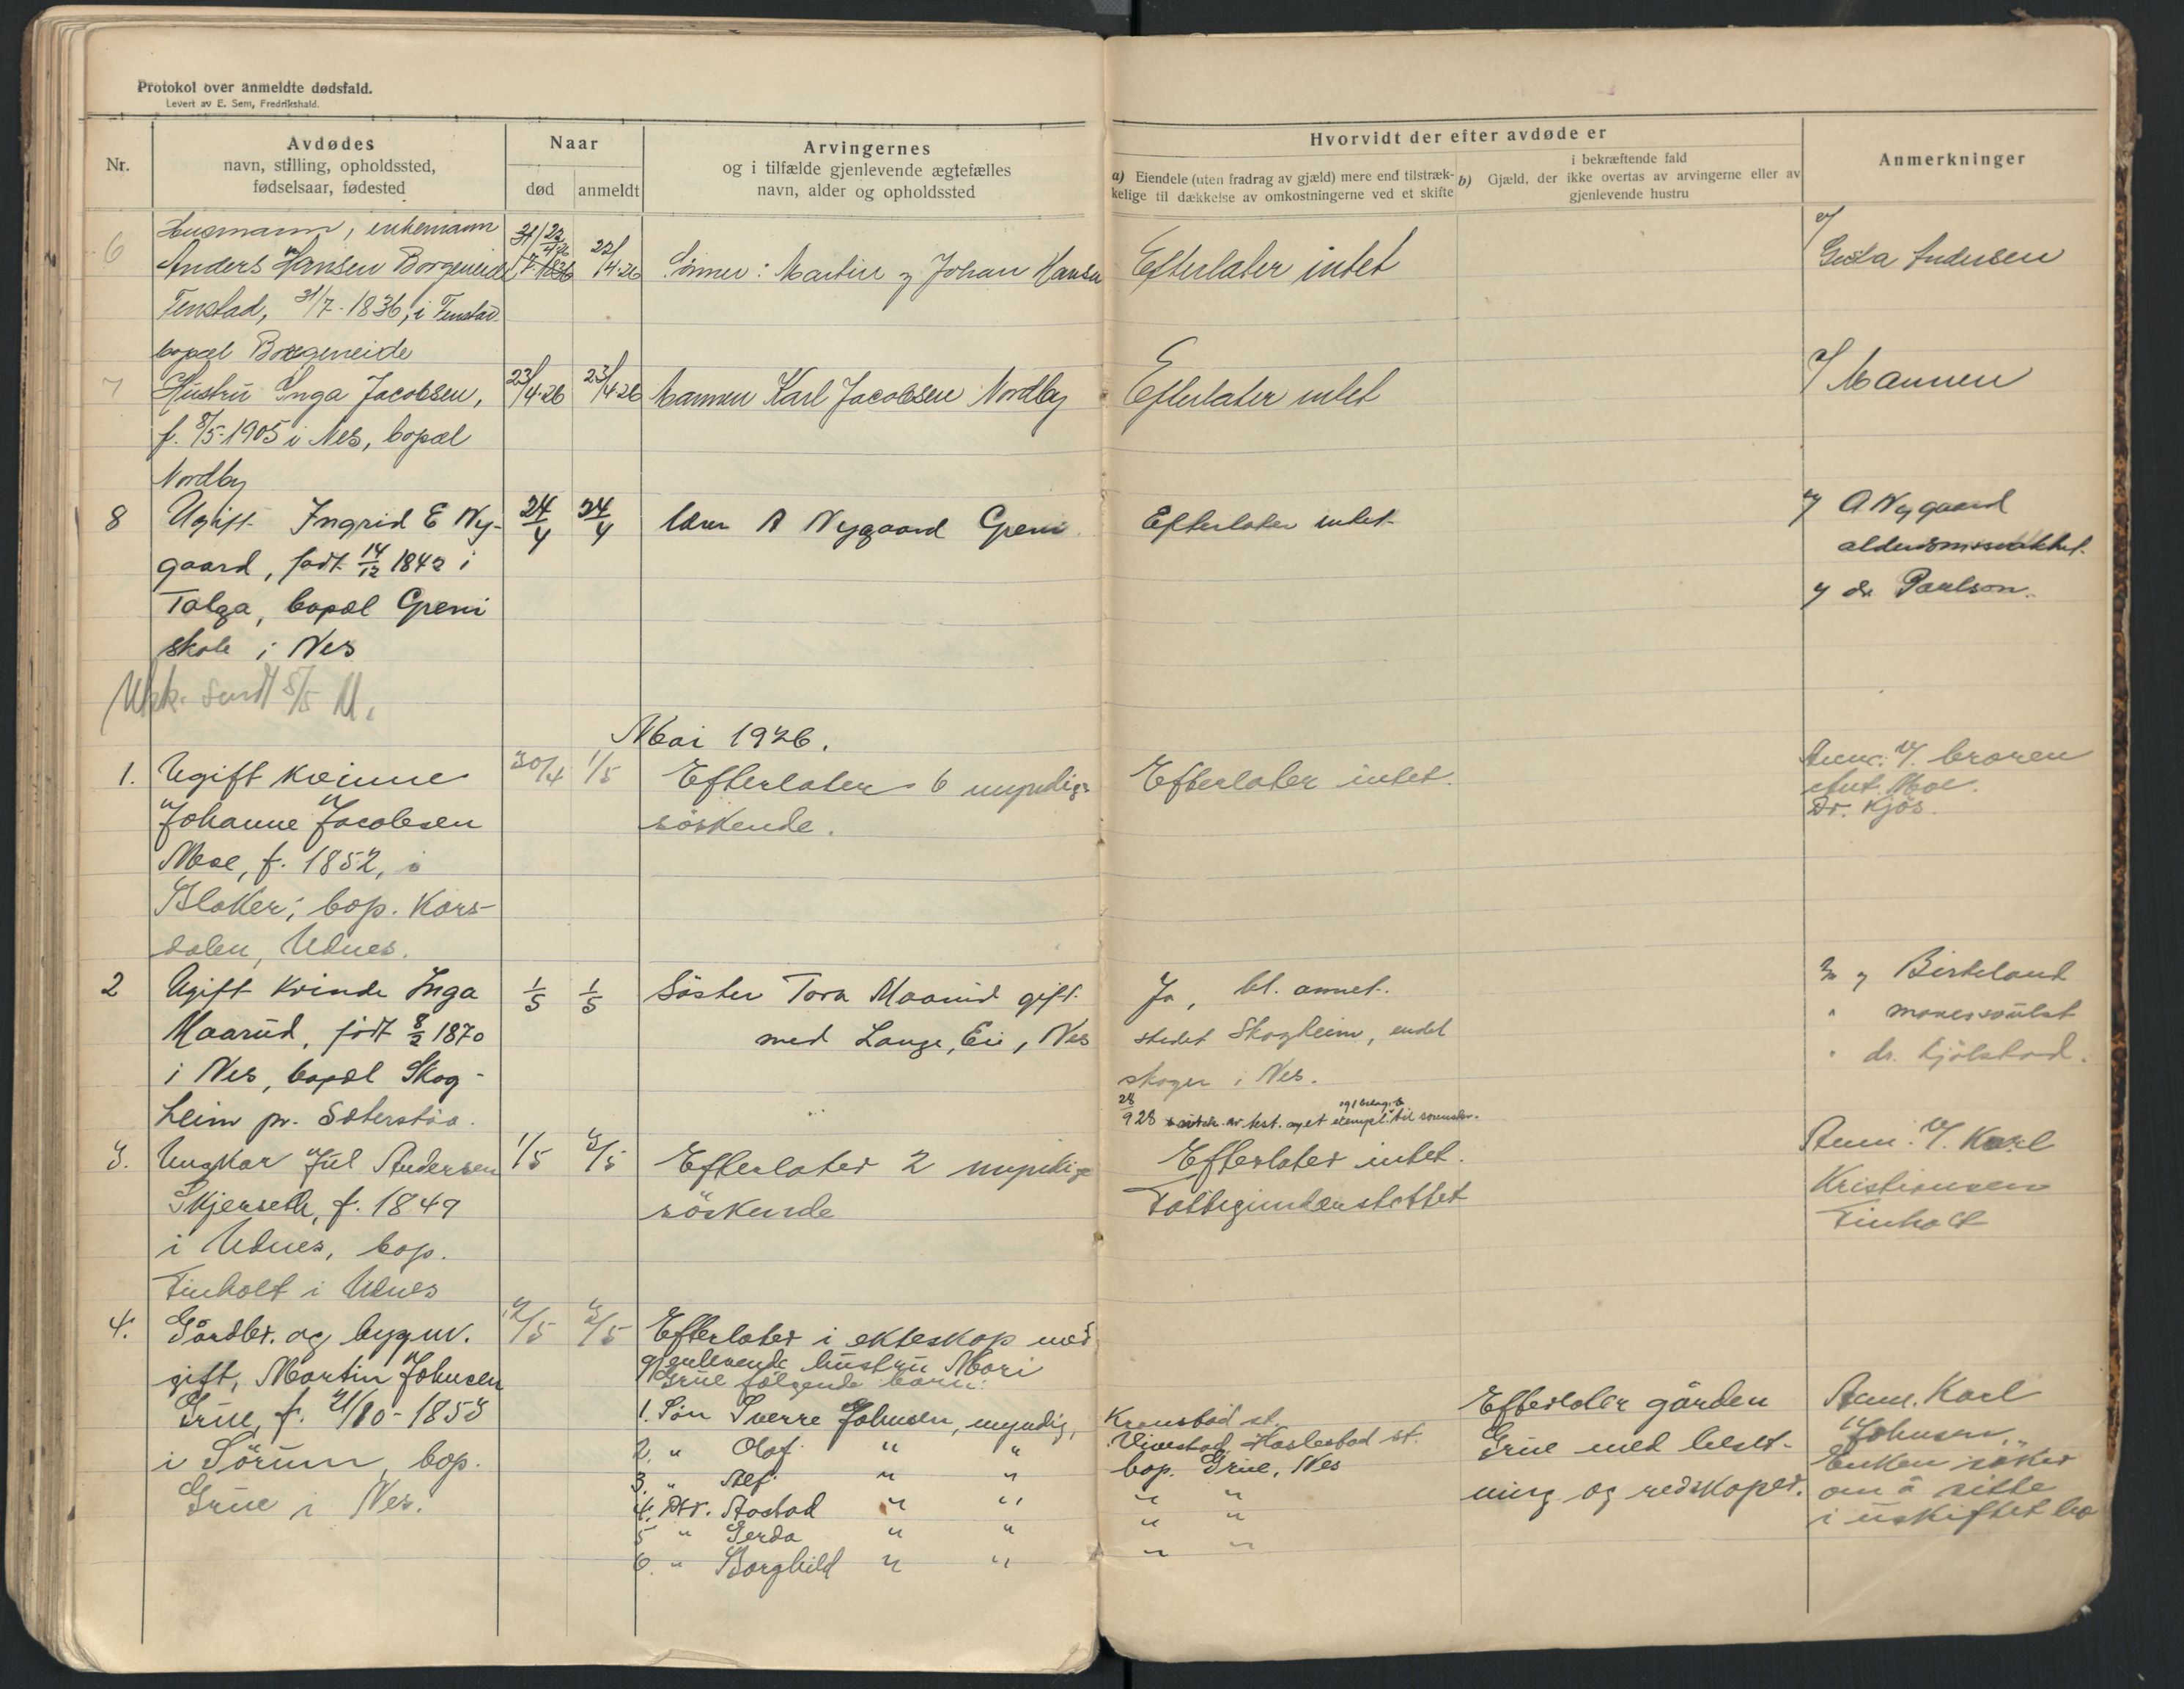 Protokol over anmeldte dødsfald.
Levert av E. Sem, Fredrikshald.
Nr.
Avdødes
navn, stilling, opholdssted,
fødselsaar, fødested
Naar
død
anmeldt
Arvingernes
og i tilfælde gjenlevende ægtefælles
navn, alder og opholdssted
Hvorvidt der efter avdøde er
a) Eiendele (uten fradrag av gjæld) mere end tilstræk-
kelige til dækkelse av omkostningerne ved et skifte
b) i bekræftende fald
Gjæld, der ikke overtas av arvingerne eller av
gjenlevende hustru
Anmerkninger
6
Husmann, enkemann
Anders Hansen Borgeneide
Fenstad, 31/7-1836, i Fenstad
bopæl Borgeneide
22/4-26
22/4-26
Sönner: Martin og Johan Hansen
Efterlater intet
Andersen
7
Hustru Inga Jacobsen,
f. 8/5-1905 i Nes, bopæl
Nordby
23/4-26
23/4-26
Mannen Karl Jacobsen Nordby
Efterlater intet
v/ Mannen
8
Ugift Ingrid E Ny-
gaard, født 14/12 1842 i
Tolga, bopæl Greni
skole i Nes
24/4
24/4
Lærer A Nygaard Greni
Efterlater intet
v/ A Nygaard
v/ dr Paulson.
sendt 5/5
Mai 1926.
1.
Ugift kvinne
Johanne Jacobsen
Moe, f. 1852, i
Blaker; bop. Kors-
dalen, Udnes.
30/4
1/5
Efterlater 6 myndige
söskende.
Efterlater intet.
Anm. v/. broren
Ant. Moe.
Dr. Kjös.
2
Ugift kvinde Inga
Maarud, født 8/2 1870
i Nes, bopæl Skog-
heim pr. Sæterstöa.
1/5
1/5
Söster Tora Maarud gift
med Lange, Eie, Nes
Ja, bl. annet.
stedet Skogheim, endel
skoger i Nes.
28/9 28 av test. og et exempl. til
Birkeland
" mavesvulst
" dr. Kjölstad.
3.
Ungkar Jul Andersen
Skjerseth, f. 1849
i Udnes, bop.
Finholt i Udnes
1/5
3/5
Efterlater 2 myndige
söskende
Efterlater intet.
Fattigunderstöttet
Anm. v/. Karl
Kristiansen
Finholt
4.
Gårdbr. og bygm.
gift, Martin Johnsen
Grue, f. 21/10-1853
i Sörum, bop.
Grue i Nes.
2/5
3/5
Efterlater i ekteskap med
gjenlevende hustru Mari
Grue fölgende barn:
1. Sön Sverre Johnsen, myndig,
2. " Olaf " "
3. " Alf " "
4. Dtr. Aastad " "
5 " Gerda " "
6. " Borghild " "
st.
Vivestad, Haslestad st.
bop. Grue, Nes
" "
" "
" "
Efterlater gården
Grue med beset-
ning og redskaper.
Anm. Karl
Johnsen.
Enken söker
om å sitte
i uskiftet bo